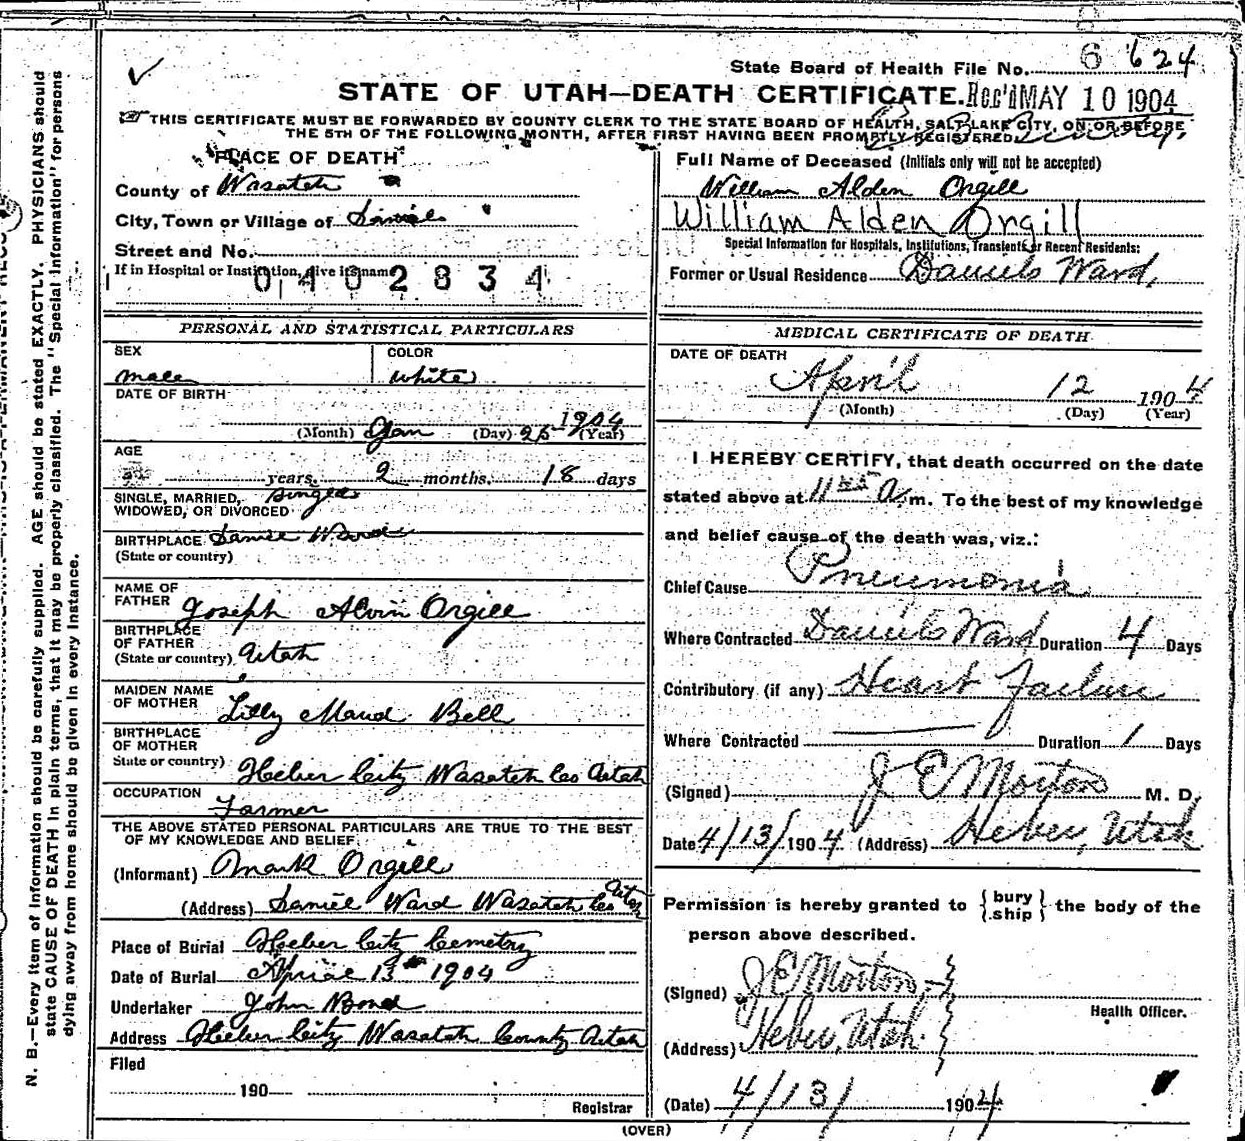 N. B.—Every item of information should be carefully supplied. AGE should be stated EXACTLY. PHYSICIANS should
state CAUSE OF DEATH in plain terms, that it may be properly classified. The "Special Information" for persons
dying away from home should be given in every instance.
State Board of Health File No. 6 624
STATE OF UTAH—DEATH CERTIFICATE.
Rec'd MAY 10 1904
THIS CERTIFICATE MUST BE FORWARDED BY COUNTY CLERK TO THE STATE BOARD OF HEALTH, SALT LAKE CITY, ON OR BEFORE
THE 5TH OF THE FOLLOWING MONTH, AFTER FIRST HAVING BEEN PROMPTLY REGISTERED
PLACE OF DEATH
County of Wasatch
City, Town or Village of Daniels
Street and No.
If in Hospital or Institution, give its name
0402834
Full Name of Deceased (Initials only will not be accepted)
William Alden Orgill
William Alden Orgill
Special Information for Hospitals, Institutions, Transients or Recent Residents:
Former or Usual Residence Daniels Ward,
PERSONAL AND STATISTICAL PARTICULARS
SEX male
COLOR white
DATE OF BIRTH
(Month) Jan (Day) 25 1904 (Year)
AGE
years, 2 months, 18 days
SINGLE, MARRIED, WIDOWED, OR DIVORCED single
BIRTHPLACE Daniel Ward
(State or country)
NAME OF FATHER Joseph Alvin Orgill
BIRTHPLACE OF FATHER
(State or country) Utah
MAIDEN NAME OF MOTHER Lilly Maud Bell
BIRTHPLACE OF MOTHER
State or country) Heber City Wasatch Co Utah
OCCUPATION Farmer
THE ABOVE STATED PERSONAL PARTICULARS ARE TRUE TO THE BEST
OF MY KNOWLEDGE AND BELIEF
(Informant) Mark Orgill
(Address) Daniel Ward Wasatch Co Utah
Place of Burial Heber City Cemetery
Date of Burial April 13th 1904
Undertaker John Bond
Address Heber City Wasatch County Utah
Filed
190
Registrar
MEDICAL CERTIFICATE OF DEATH
DATE OF DEATH
April 12 1904
(Month) (Day) (Year)
I HEREBY CERTIFY, that death occurred on the date
stated above at 11 55 A.m. To the best of my knowledge
and belief cause of the death was, viz.:
Chief Cause Pneumonia
Where Contracted Daniels Ward Duration 4 Days
Contributory (if any) Heart Failure
Where Contracted Duration 1 Days
(Signed) J E Morton M. D.
Date 4/13/1904. (Address) Heber, Utah
Permission is hereby granted to { bury ship } the body of the
person above described.
(Signed) J E Morton,
Health Officer.
(Address) Heber, Utah.
(Date) 4/13/ 1904.
(OVER)